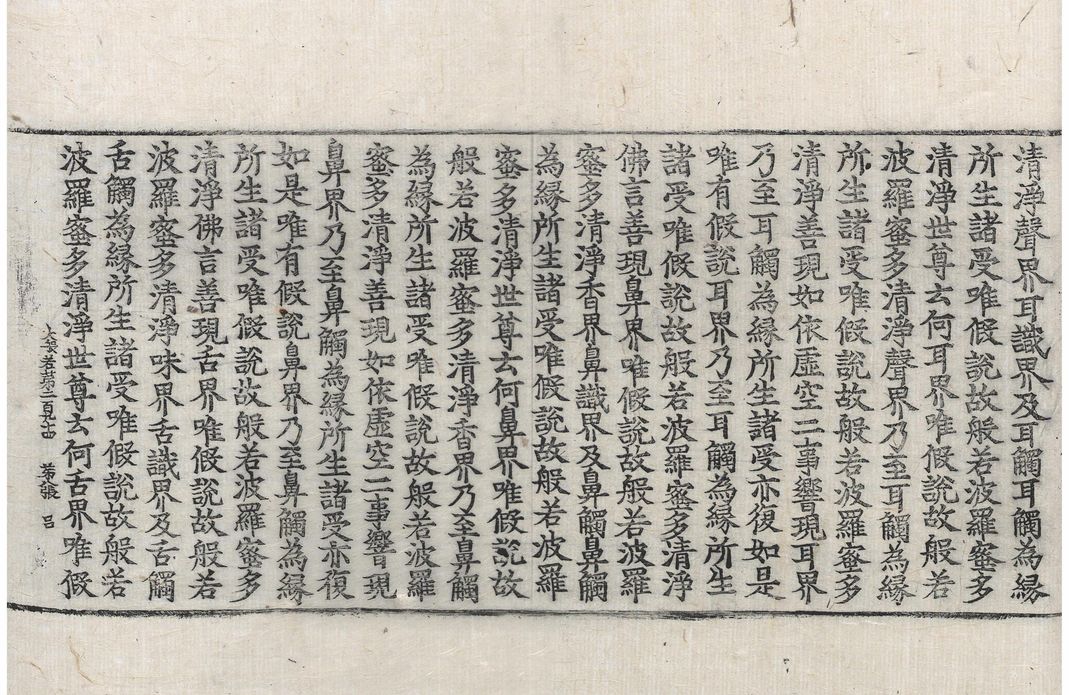 清淨聲界耳識界及耳觸耳觸為緣
所生諸受唯假說故般若波羅蜜多
清淨世尊云何耳界唯假說故般若
波羅蜜多清淨聲界乃至耳觸為緣
所生諸受唯假說故般若波羅蜜多
清淨善現如依虛空二事響現耳界
乃至耳觸為緣所生諸受亦復如是
唯有假說耳界乃至耳觸為緣所生
諸受唯假說故般若波羅蜜多清淨
佛言善現鼻界唯假說故般若波羅
蜜多清淨香界鼻識界及鼻觸鼻觸
為緣所生諸受唯假說故般若波羅
蜜多清淨世尊云何鼻界唯假說故
般若波羅蜜多清淨香界乃至鼻觸
為緣所生諸受唯假說故般若波羅
蜜多清淨善現如依虛空二事響現
鼻界乃至鼻觸為緣所生諸受亦復
如是唯有假說鼻界乃至鼻觸為緣
所生諸受唯假說故般若波羅蜜多
清淨佛言善現舌界唯假說故般若
波羅蜜多清淨味界舌識界及舌觸
舌觸為緣所生諸受唯假說故般若
波羅蜜多清淨世尊云何舌界唯假
大般若第二百九十四 張 呂